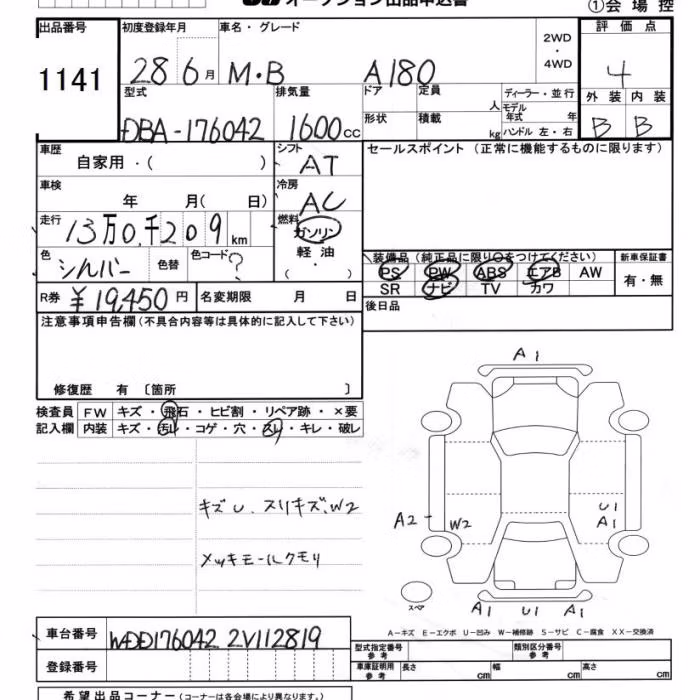 オークション出品申込書
①会場控
出品番号
1141
初度登録年月
28 6月
車名・グレード
M・B A180
2WD
・
4WD
評価点
4
外装 内装
B B
型式
DBA-176042
排気量
1600cc
ドア
定員
人
形状
積載
kg
ディーラー・並行
モデル年式 年
ハンドル 左・右
車歴
自家用・( )
シフト
AT
セールスポイント (正常に機能するものに限ります)
車検
年 月( 日)
冷房
AC
走行
13万0千209km
燃料
ガソリン
軽油
( ・ )
色
シルバー
色替
色コード
?
装備品 (純正品に限り○をつけてください)
PS PW ABS エアB AW
SR ナビ TV カワ
新車保証書
有・無
R券
¥19,450円
名変期限 月 日
後日品
注意事項申告欄(不具合内容等は具体的に記入して下さい)
修復歴 有 〔箇所 〕
検査員記入欄
FW キズ・飛石・ヒビ割・リペア跡・×要
内装 キズ・汚レ・コゲ・穴・スレ・キレ・破レ
キズU.スリキズ.W2
メッキモールクモリ
A1
A2
W2
U1
A1
スペア
A1 U1 A1
A-キズ E-エクボ U-凹み W-補修跡 S-サビ C-腐食 XX-交換済
車台番号
WDD176042 2V112819
登録番号
型式指定番号
参考
類別区分番号
参考
車庫証明用
参考
長さ cm 幅 cm 高さ cm
希望出品コーナー(コーナーは各会場により異なります。)